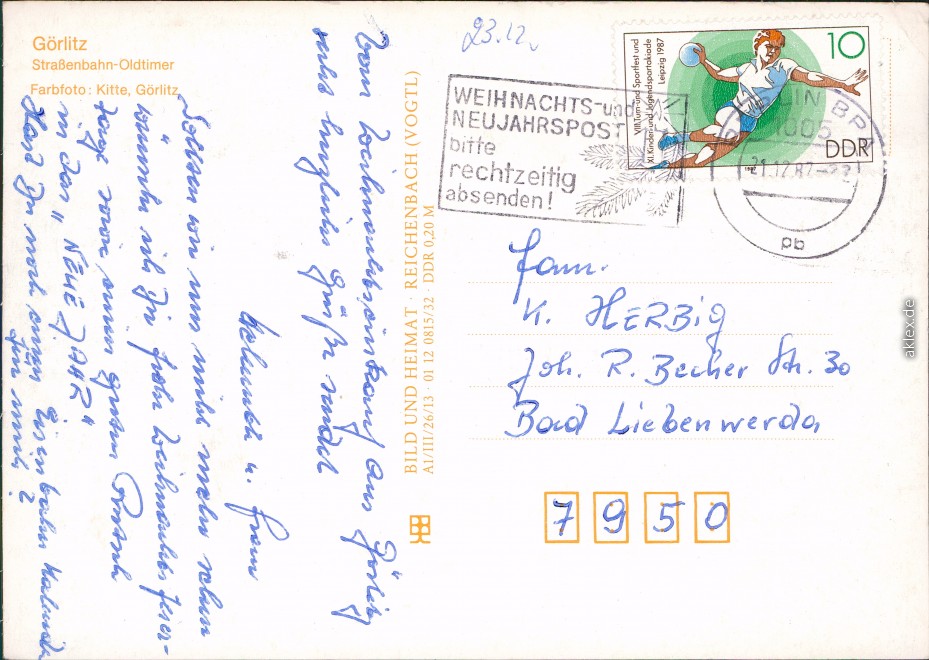 Görlitz
Straßenbahn-Oldtimer
Farbfoto: Kitte, Görlitz
23.12.
WEIHNACHTS- und
NEUJAHRSPOST
bitte
rechtzeitig
absenden!
VIII. Turn- und Sportfest und
XI. Kinder- und Jugendspartakiade
Leipzig 1987
10
DDR
1987
BERLIN BPA
1005
21.12.87-22
pb
Vom Weihnachtseinkauf aus Görlitz
sehr herzliche Grüße sendet
Helmuth u. Frau
Sollten wir uns nicht mehr sehen
wünsche ich Dir frohe Weihnachtsfeier-
tage sowie einen guten Rutsch
in das "NEUE JAHR"
Hast Du noch einen Eisenbahn Kalender
für mich?
BILD UND HEIMAT · REICHENBACH (VOGTL)
A1/III/26/13 · 01 12 0815/32 · DDR 0,20 M
Fam.
K. HERBIG
Joh. R. Becher Str. 30
Bad Liebenwerda
7950
aklex.de